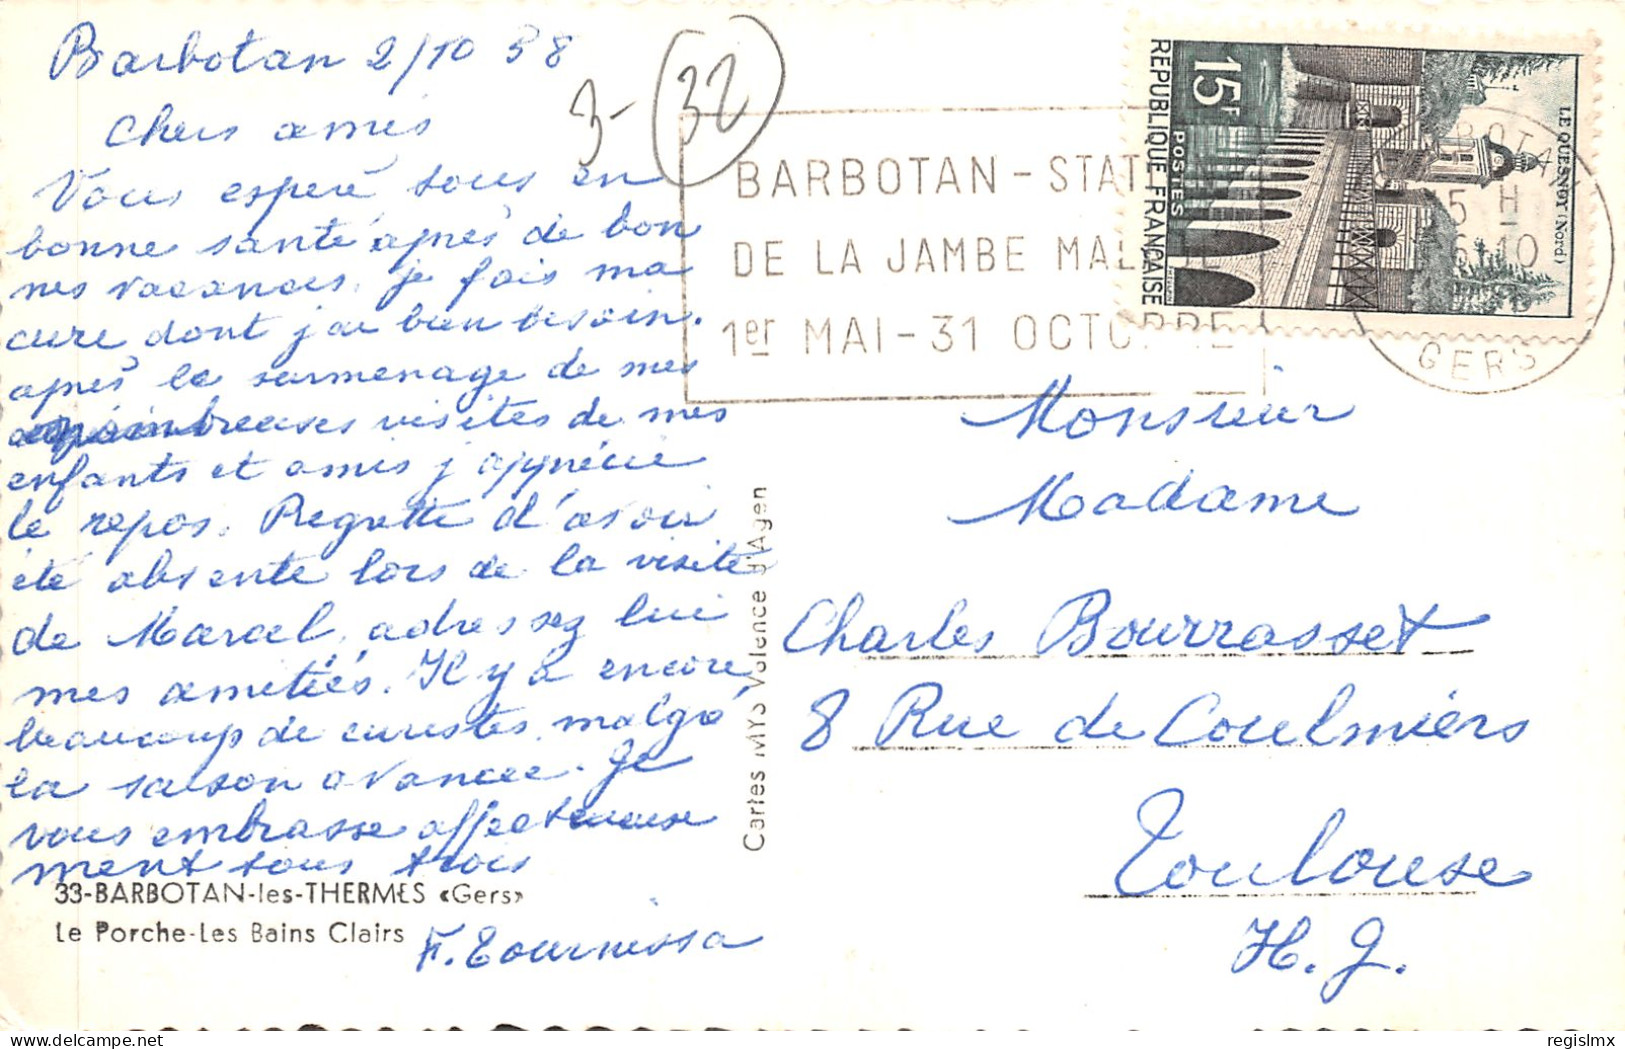 Barbotan 2/10 58
3-
32
Chers amis
Vous espère tous en
bonne santé après de bon
nes vacances. je fais ma
cure dont j'ai bien besoin.
après le surmenage de mes
nombreuses visites de mes
enfants et amis j'apprécie
le repos. Regrette d'avoir
été absente lors de la visite
de Marcel, adressez lui
mes amitiés. Il y a encore
beaucoup de curistes malgré
la saison avancée. Je
vous embrasse affectueuse
ment tous trois
33-BARBOTAN-les-THERMES «Gers»
Le Porche-Les Bains Clairs
F. Tournissa
Cartes MYS Valence d'Agen
BARBOTAN - STAT
DE LA JAMBE MAL
1er MAI - 31 OCTOBRE
15F
POSTES
REPUBLIQUE FRANÇAISE
LE QUESNOY (Nord)
BOTA
15 H
6-10
GERS
Monsieur
Madame
Charles Bourrasset
8 Rue de Coulmiers
Toulouse
H. G.
regislmx